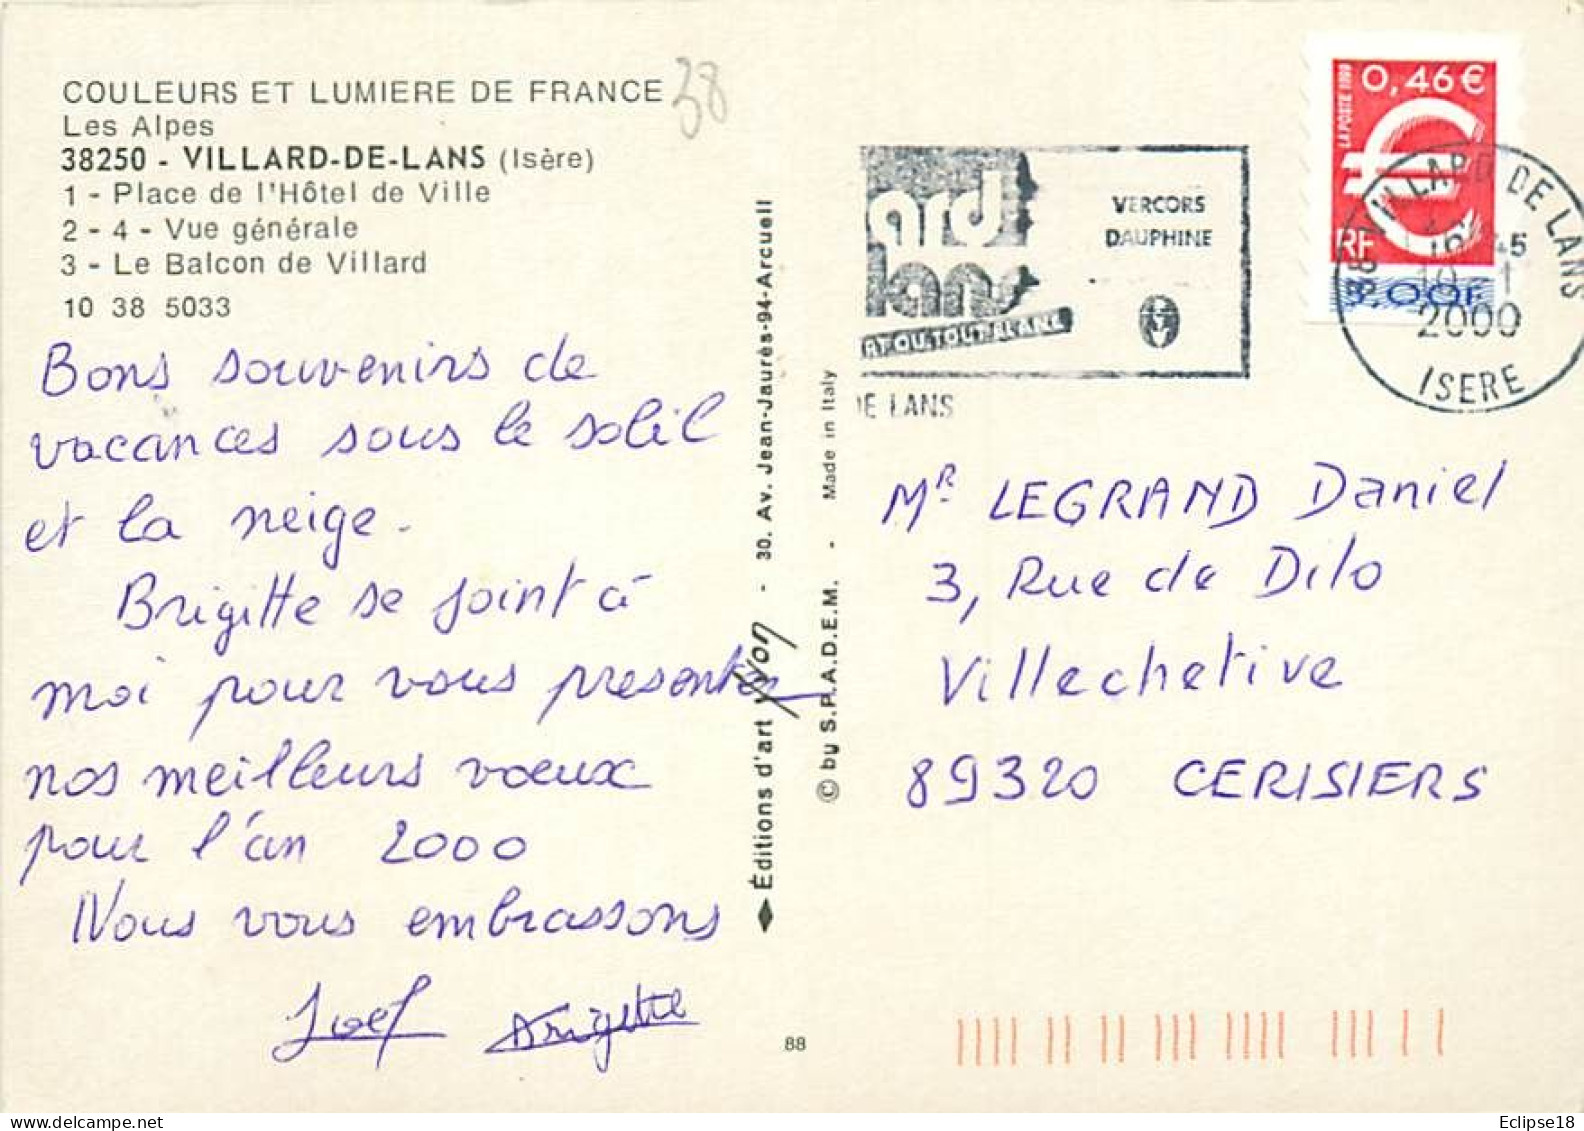 COULEURS ET LUMIERE DE FRANCE
38
Les Alpes
38250 - VILLARD-DE-LANS (Isère)
1 - Place de l'Hôtel de Ville
2 - 4 - Vue générale
3 - Le Balcon de Villard
10 38 5033
Bons souvenirs de
vacances sous le soleil
et la neige.
Brigitte se joint à
moi pour vous presenter
nos meilleurs voeux
pour l'an 2000
Nous vous embrassons
Joël Brigitte
Éditions d'art Yvon - 30. Av. Jean-Jaurès-94-Arcueil
© by S.P.A.D.E.M. - Made in Italy
88
ard
lans
OU TOUT BLANC
VERCORS
DAUPHINE
DE LANS
LA POSTE 1999
0,46 €
RF
3,00F
38 VILLARD DE LANS
2000
ISERE
MR LEGRAND Daniel
3, Rue de Dilo
Villechetive
89320 CERISIERS
Eclipse18